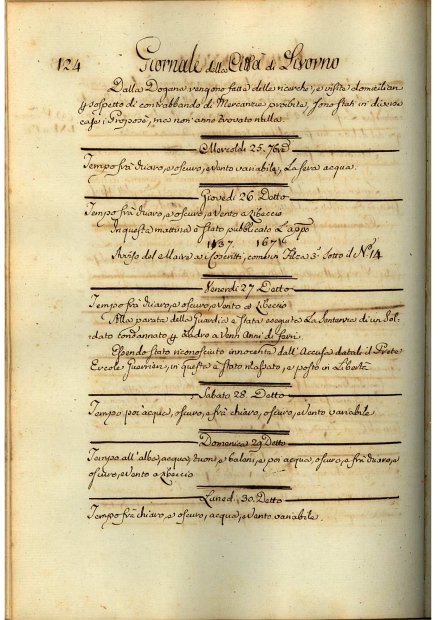 124 Giornale della Città di Livorno
Dalla Dogana vengono fatte delle ricerche, e visite domiciliari
p sospetto di contrabbando di Mercanzie proibite, sono stati in diverse
case i Proposti, ma non anno trovato nulla.
Mercoldi 25. 7bre
Tempo frà chiaro, e oscuro, e vento variabile, La sera acqua.
Giovedi 26. Detto
Tempo frà chiaro, e oscuro, e vento a Libeccio
In questa mattina è stato pubblicato L'appo
1437. 1676
Avviso del Maire ai Coscritti, come in Filza 3ª sotto il N.º 14
Venerdi 27 Detto
Tempo frà chiaro, e oscuro, e vento a Libeccio
Alla parata della Guardia è stata eseguita La Sentenza di un Sol-
dato condannato p Ladro a Venti Anni di ferri.
Essendo stato riconosciuto innocente dall'Accusa datali il Prete
Ercole Guerrieri, in questa è stato rilassato, e posto in Libertà
Sabato 28 Detto
Tempo poi acqua, oscuro, e frà chiaro, oscuro, e vento variabile
Domenica 29 Detto
Tempo all'alba, acqua, tuoni, e baleni, e poi acqua, oscuro, e frà chiaro, e
oscuro, e vento a Libeccio
Lunedi 30. Detto
Tempo frà chiaro, e oscuro, acqua, e vento variabile.